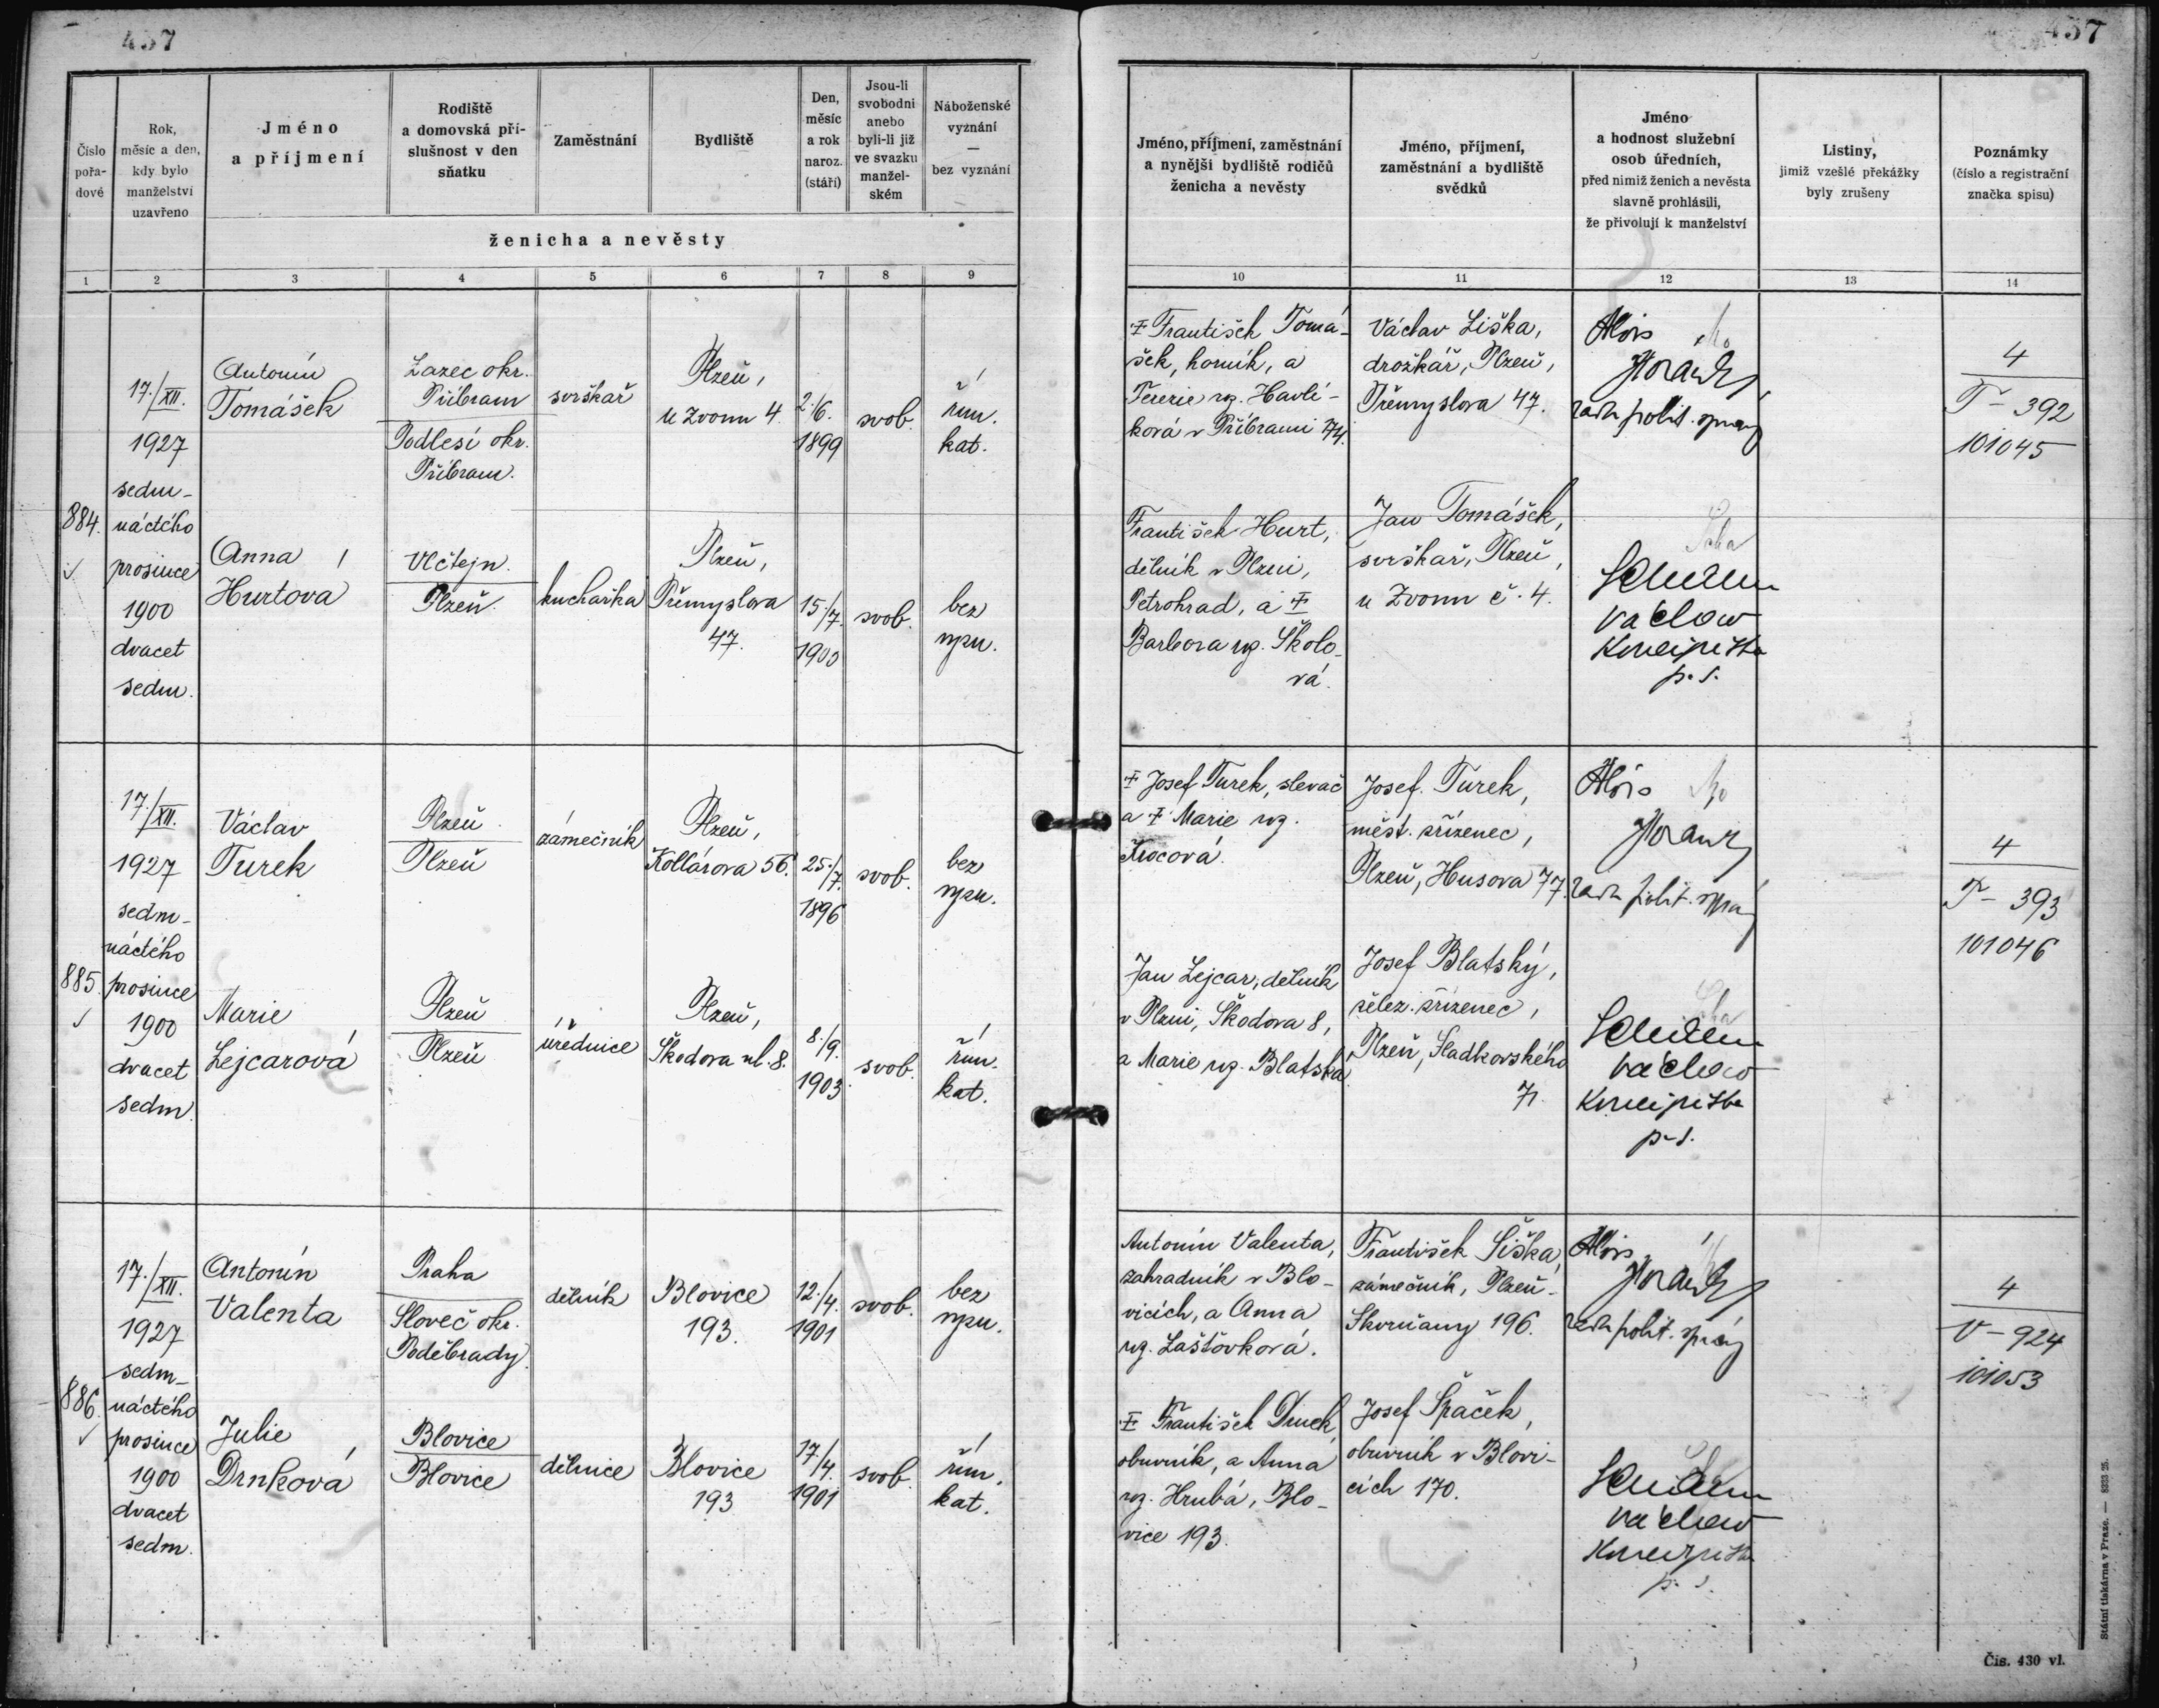 457
457
Číslo pořadové
Rok, měsíc a den, kdy bylo manželství uzavřeno
Jméno a příjmení
Rodiště a domovská příslušnost v den sňatku
Zaměstnání
Bydliště
Den, měsíc a rok naroz. (stáří)
Jsou-li svobodni anebo byli-li již ve svazku manželském
Náboženské vyznání — bez vyznání
ženicha a nevěsty
Jméno, příjmení, zaměstnání a nynější bydliště rodičů ženicha a nevěsty
Jméno, příjmení, zaměstnání a bydliště svědků
Jméno a hodnost služební osob úředních, před nimiž ženich a nevěsta slavně prohlásili, že přivolují k manželství
Listiny, jimiž vzešlé překážky byly zrušeny
Poznámky (číslo a registrační značka spisu)
1 2 3 4 5 6 7 8 9 10 11 12 13 14
884.
17./XII.
1927
sedm-
náctého
prosince
1900
dvacet
sedm.
Antonín
Tomášek
Lazec okr.
Příbram
Podlesí okr.
Příbram.
svrškař
Plzeň,
u Zvonu 4.
2./6.
1899
svob.
řím.
kat.
Anna
Hurtová
Vlčtejn.
Plzeň.
kuchařka
Plzeň,
Přemyslova
47.
15./7.
1900
svob.
bez
vyzn.
František Tomá-
šek, horník, a
Terezie roz. Havlí-
ková v Příbrami 174.
František Hurt,
dělník v Plzni,
Petrohrad, a
Barbora roz. Školo-
vá.
Václav Liška,
drožkář, Plzeň,
Přemyslova 47.
Jan Tomášek,
svrškař, Plzeň,
u Zvonu č. 4.
Alois
rada polit. správy
Václav
p. s.
4
T – 392
101045
885.
17./XII.
1927
sedm-
náctého
prosince
1900
dvacet
sedm
Václav
Turek
Plzeň
Plzeň
zámečník
Plzeň,
Kollárova 56.
25./7.
1896
svob.
bez
vyzn.
Marie
Lejcarová
Plzeň
Plzeň
úřednice
Plzeň,
Škodova ul. 8.
8./9.
1903.
svob.
řím.
kat.
Josef Turek, slevač
a Marie roz.
Jan Lejcar, dělník
v Plzni, Škodova 8,
a Marie roz. Blatská.
Josef Turek,
měst. zřízenec,
Plzeň, Husova 77.
Josef Blatský,
želez. zřízenec,
Plzeň, Sladkovského
71.
Alois
rada polit. správy
Václav
p. s.
4
T – 393
101046
886.
17./XII.
1927
sedm-
náctého
prosince
1900
dvacet
sedm.
Antonín
Valenta
Praha
Sloveč okr.
Poděbrady.
dělník
Blovice
193.
12./4.
1901
svob.
bez
vyzn.
Julie
Drnková
Blovice
Blovice
dělnice
Blovice
193
17/4.
1901
svob.
řím.
kat.
Antonín Valenta,
zahradník v Blo-
vicích, a Anna
roz. Laštovková.
František Drnek,
obuvník, a Anna
roz. Hrubá, Blo-
vice 193.
František Šiška,
zámečník, Plzeň-
Skvrňany 196.
Josef Špaček,
obuvník v Blovi-
cích 170.
Alois
rada polit. správy
Václav
p. s.
4
V – 924
101053
Státní tiskárna v Praze. — 8333 25.
Čís. 430 vl.